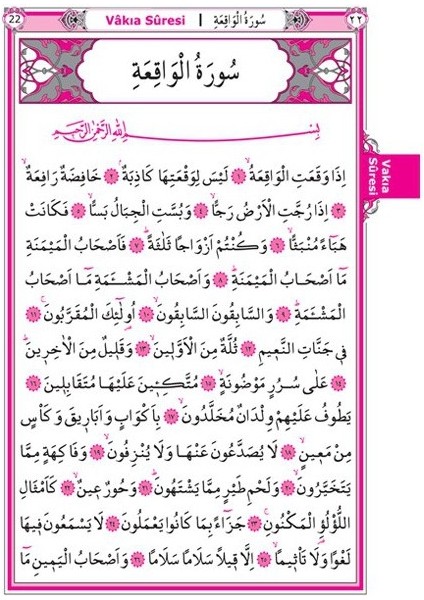 22 Vâkıa Sûresi | سُورَةُ الْوَاقِعَةِ ٢٢
سُورَةُ الْوَاقِعَةِ
بِسْمِ اللّٰهِ الرَّحْمٰنِ الرَّحِيمِ
اِذَا وَقَعَتِ الْوَاقِعَةُۙ ﴿١﴾ لَيْسَ لِوَقْعَتِهَا كَاذِبَةٌۢ ﴿٢﴾ خَافِضَةٌ رَافِعَةٌۙ
﴿٣﴾ اِذَا رُجَّتِ الْاَرْضُ رَجًّاۙ ﴿٤﴾ وَبُسَّتِ الْجِبَالُ بَسًّاۙ ﴿٥﴾ فَكَانَتْ
هَبَٓاءً مُنْبَثًّاۙ ﴿٦﴾ وَكُنْتُمْ اَزْوَاجًا ثَلٰثَةًۜ ﴿٧﴾ فَاَصْحَابُ الْمَيْمَنَةِ
مَٓا اَصْحَابُ الْمَيْمَنَةِۜ ﴿٨﴾ وَاَصْحَابُ الْمَشْـَٔمَةِ مَٓا اَصْحَابُ
الْمَشْـَٔمَةِۜ ﴿٩﴾ وَالسَّابِقُونَ السَّابِقُونَۙ ﴿١٠﴾ اُو۬لٰٓئِكَ الْمُقَرَّبُونَۚ ﴿١١﴾
ف۪ي جَنَّاتِ النَّع۪يمِ ﴿١٢﴾ ثُلَّةٌ مِنَ الْاَوَّل۪ينَۙ ﴿١٣﴾ وَقَل۪يلٌ مِنَ الْاٰخِر۪ينَۜ
﴿١٤﴾ عَلٰى سُرُرٍ مَوْضُونَةٍۙ ﴿١٥﴾ مُتَّكِـ۪ٔينَ عَلَيْهَا مُتَقَابِل۪ينَ ﴿١٦﴾
يَطُوفُ عَلَيْهِمْ وِلْدَانٌ مُخَلَّدُونَۙ ﴿١٧﴾ بِاَكْوَابٍ وَاَبَار۪يقَ وَكَأْسٍ
مِنْ مَع۪ينٍۙ ﴿١٨﴾ لَا يُصَدَّعُونَ عَنْهَا وَلَا يُنْزِفُونَۙ ﴿١٩﴾ وَفَاكِهَةٍ مِمَّا
يَتَخَيَّرُونَۙ ﴿٢٠﴾ وَلَحْمِ طَيْرٍ مِمَّا يَشْتَهُونَۜ ﴿٢١﴾ وَحُورٌ ع۪ينٌۙ ﴿٢٢﴾ كَاَمْثَالِ
اللُّؤْلُؤِ۬ الْمَكْنُونِۚ ﴿٢٣﴾ جَزَٓاءً بِمَا كَانُوا يَعْمَلُونَ ﴿٢٤﴾ لَا يَسْمَعُونَ ف۪يهَا
لَغْوًا وَلَا تَأْث۪يمًاۙ ﴿٢٥﴾ اِلَّا ق۪يلًا سَلَامًا سَلَامًا ﴿٢٦﴾ وَاَصْحَابُ الْيَم۪ينِ مَٓا
Vakıa
Sûresi